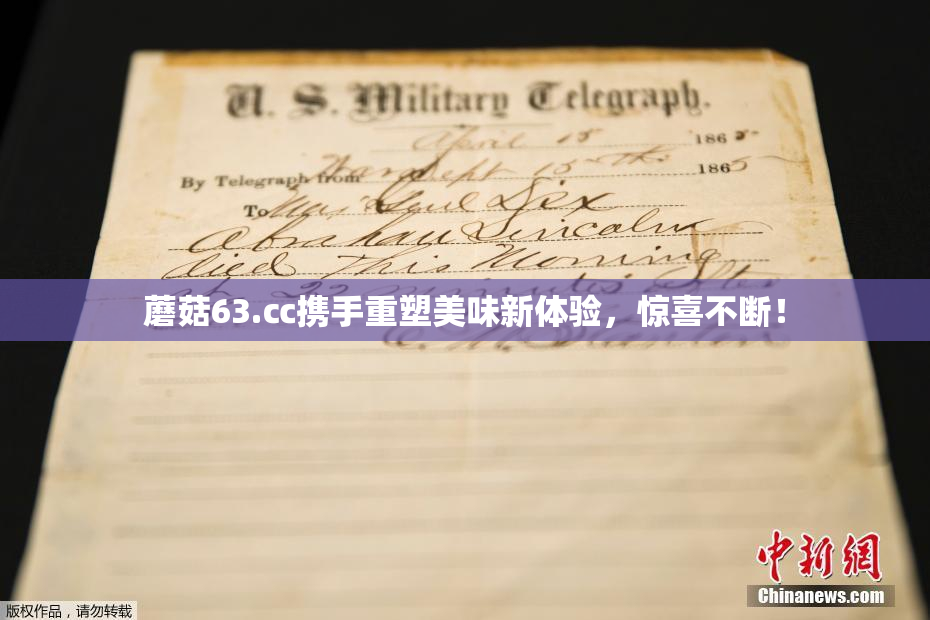 U. S. Military Telegraph.
April 15 1865-
By Telegraph from War Dept 15th 1865
To Maj Genl Dix
Abraham Lincoln
died This Morning
at 22 minutes after
蘑菇63.cc携手重塑美味新体验，惊喜不断！
E. M. Stanton
中新网
Chinanews.com
版权作品，请勿转载